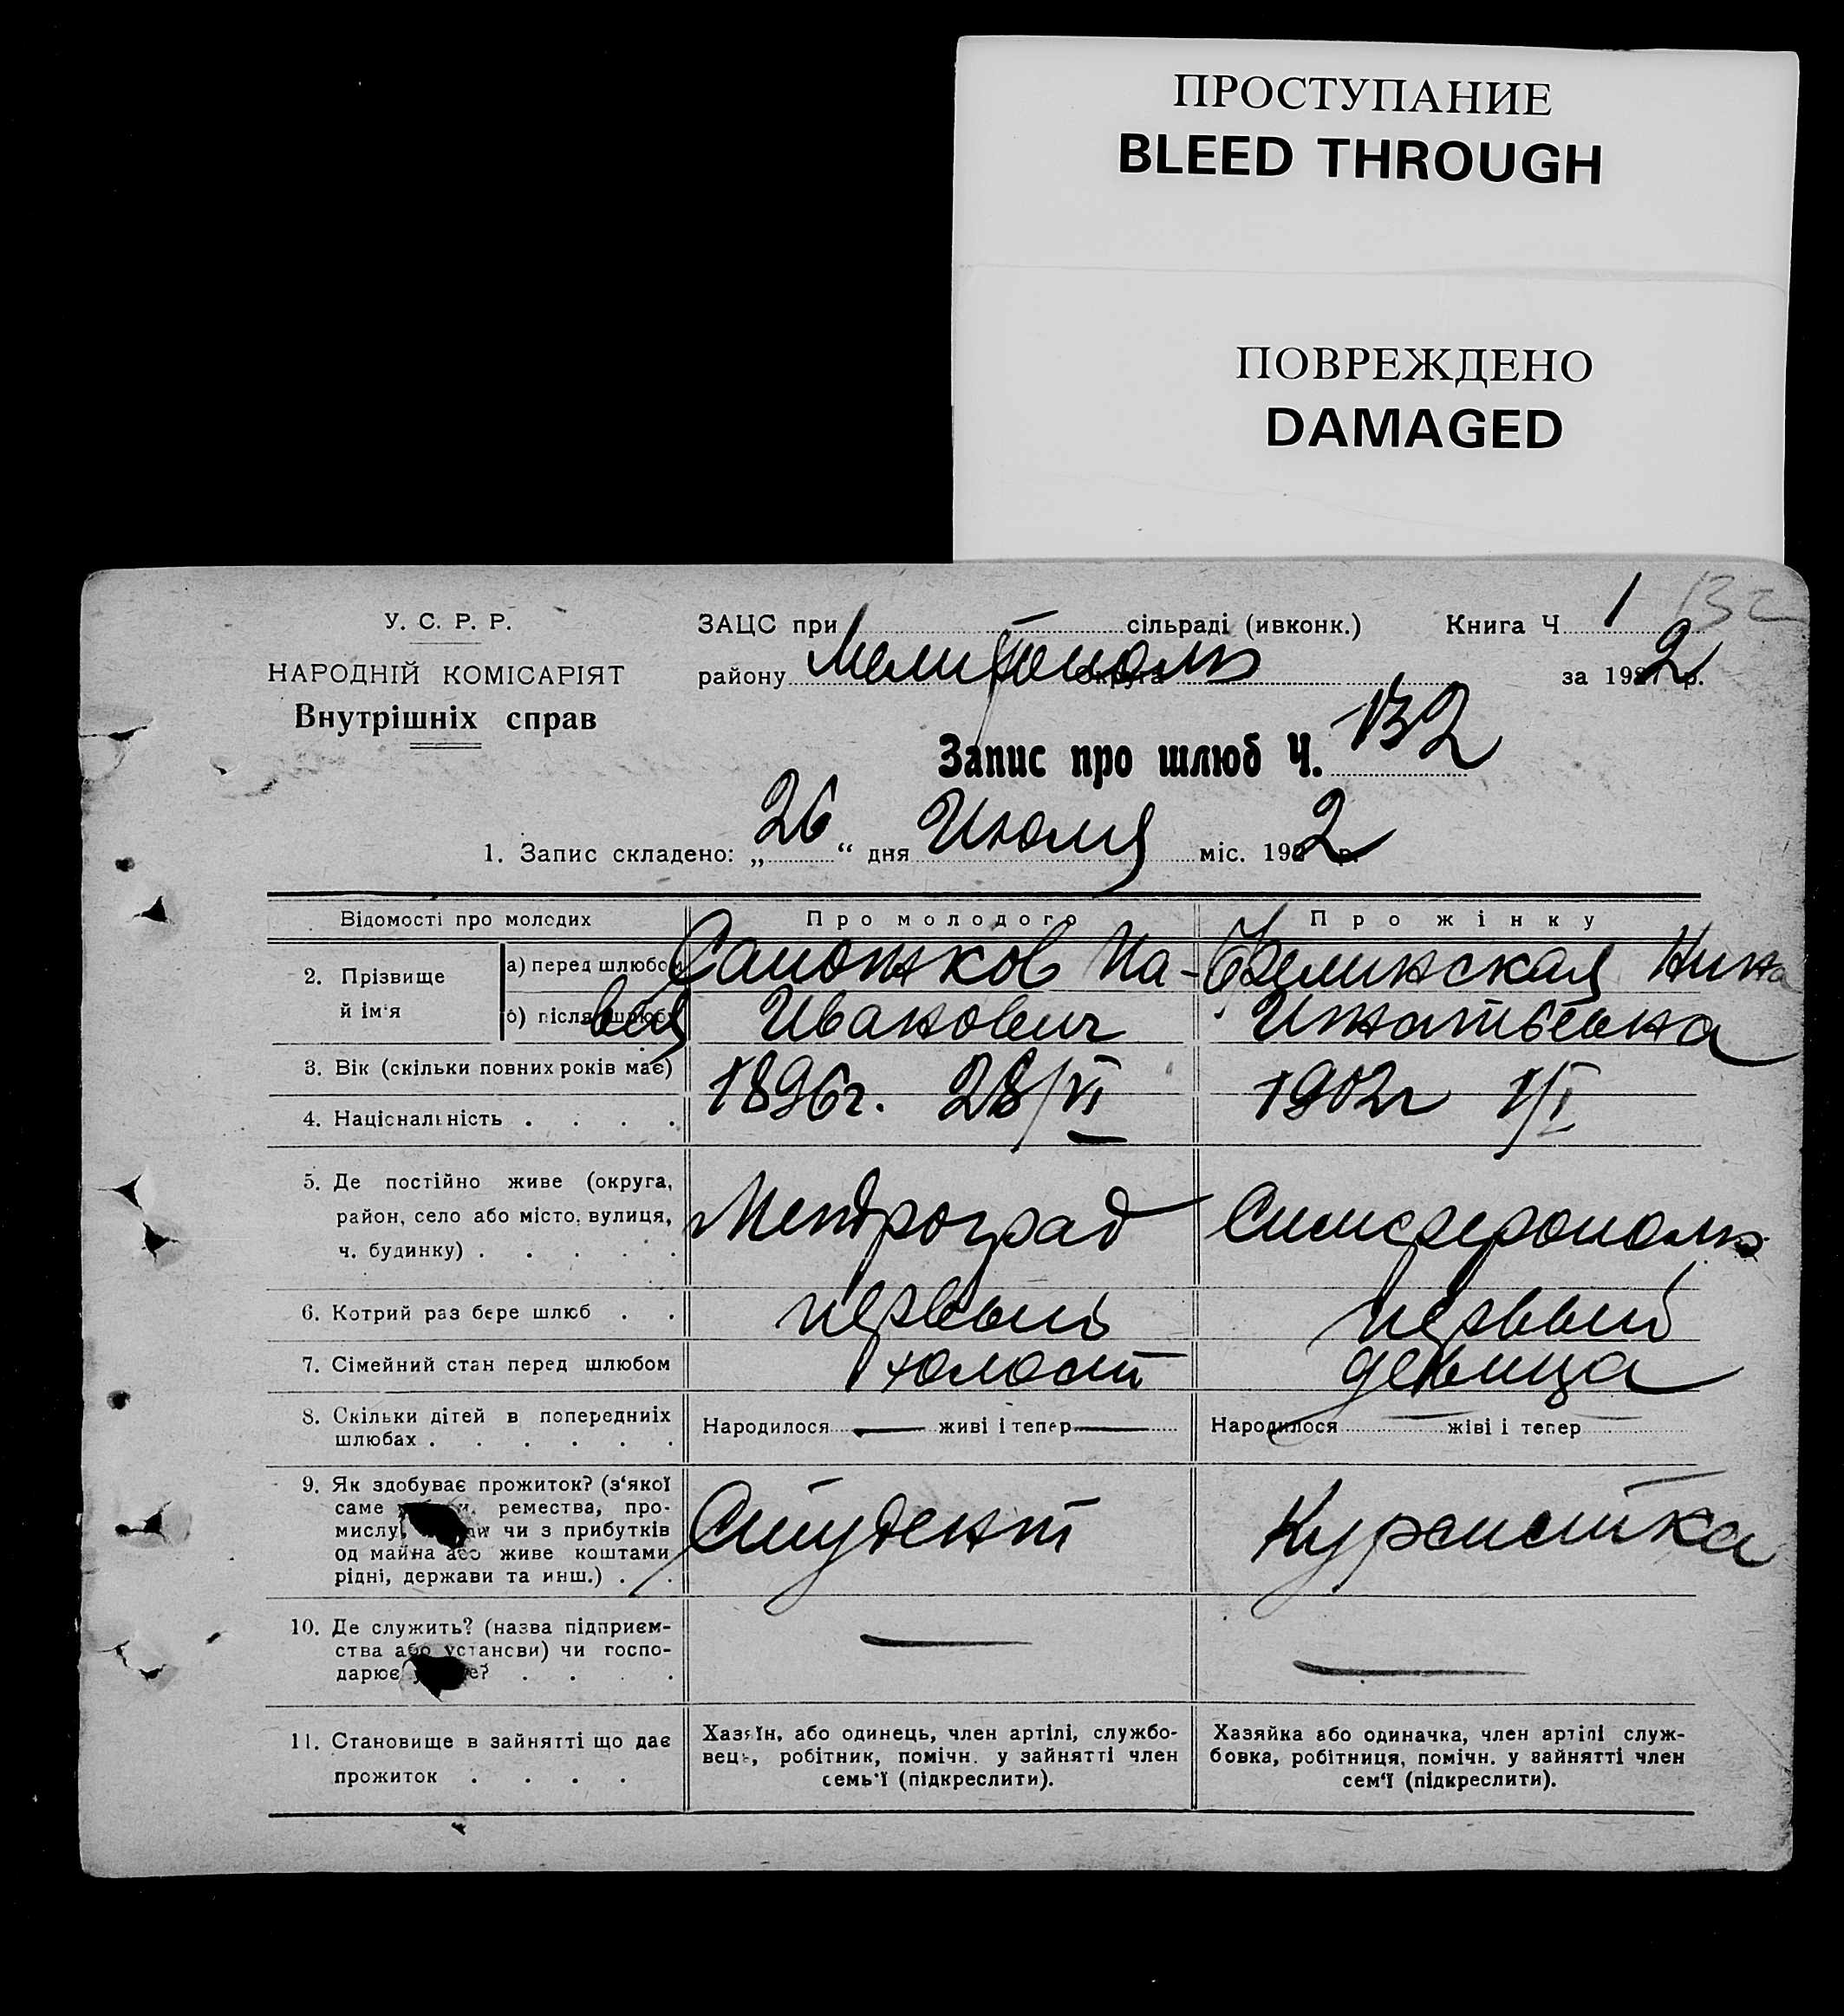 ПРОСТУПАНИЕ
BLEED THROUGH
ПОВРЕЖДЕНО
DAMAGED
У. С. Р. Р.
НАРОДНІЙ КОМІСАРІЯТ
Внутрішніх справ
ЗАЦС при сільраді (ивконк.) Книга Ч. 1 132
району Мелитополь округа за 1922 р.
Запис про шлюб Ч. 132
1. Запис складено: „26“ дня Июля міс. 1922 р.
Відомості про молодих
Про молодого
Про жінку
2. Прізвище й ім'я
а) перед шлюбом
б) після шлюбу
Сапожков Па-
вел Иванович
Белинская Нина
Игнатьевна
3. Вік (скільки повних років має)
1896г. 28/VI
1902г 1/I
4. Національність . . . .
5. Де постійно живе (округа,
район, село або місто, вулиця,
ч. будинку) . . . . .
Петроград
Симферополь
6. Котрий раз бере шлюб . .
первый
первый
7. Сімейний стан перед шлюбом
холост
девица
8. Скільки дітей в попередниіх
шлюбах . . . . . .
Народилося — живі і тепер —
Народилося живі і тепер
9. Як здобуває прожиток? (з'якої
саме ремества, про-
мислу, чи з прибутків
од майна або живе коштами
рідні, держави та инш.) . .
Студент
Курсистка
10. Де служить? (назва підприєм-
ства або установи) чи госпо-
дарює . . . .
—
—
11. Становище в зайнятті що дає
прожиток . . . .
Хазяїн, або одинець, член артілі, службо-
вець, робітник, помічн. у зайнятті член
семь'ї (підкреслити).
Хазяйка або одиначка, член артілі служ-
бовка, робітниця, помічн. у зайнятті член
сем'ї (підкреслити).